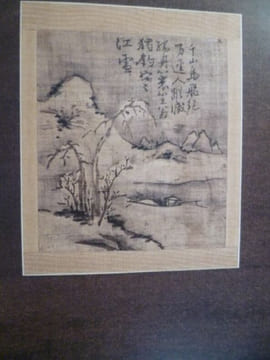 千山鳥飛絕
万逕人蹤滅
孤舟簑笠翁
獨釣寒
江雪